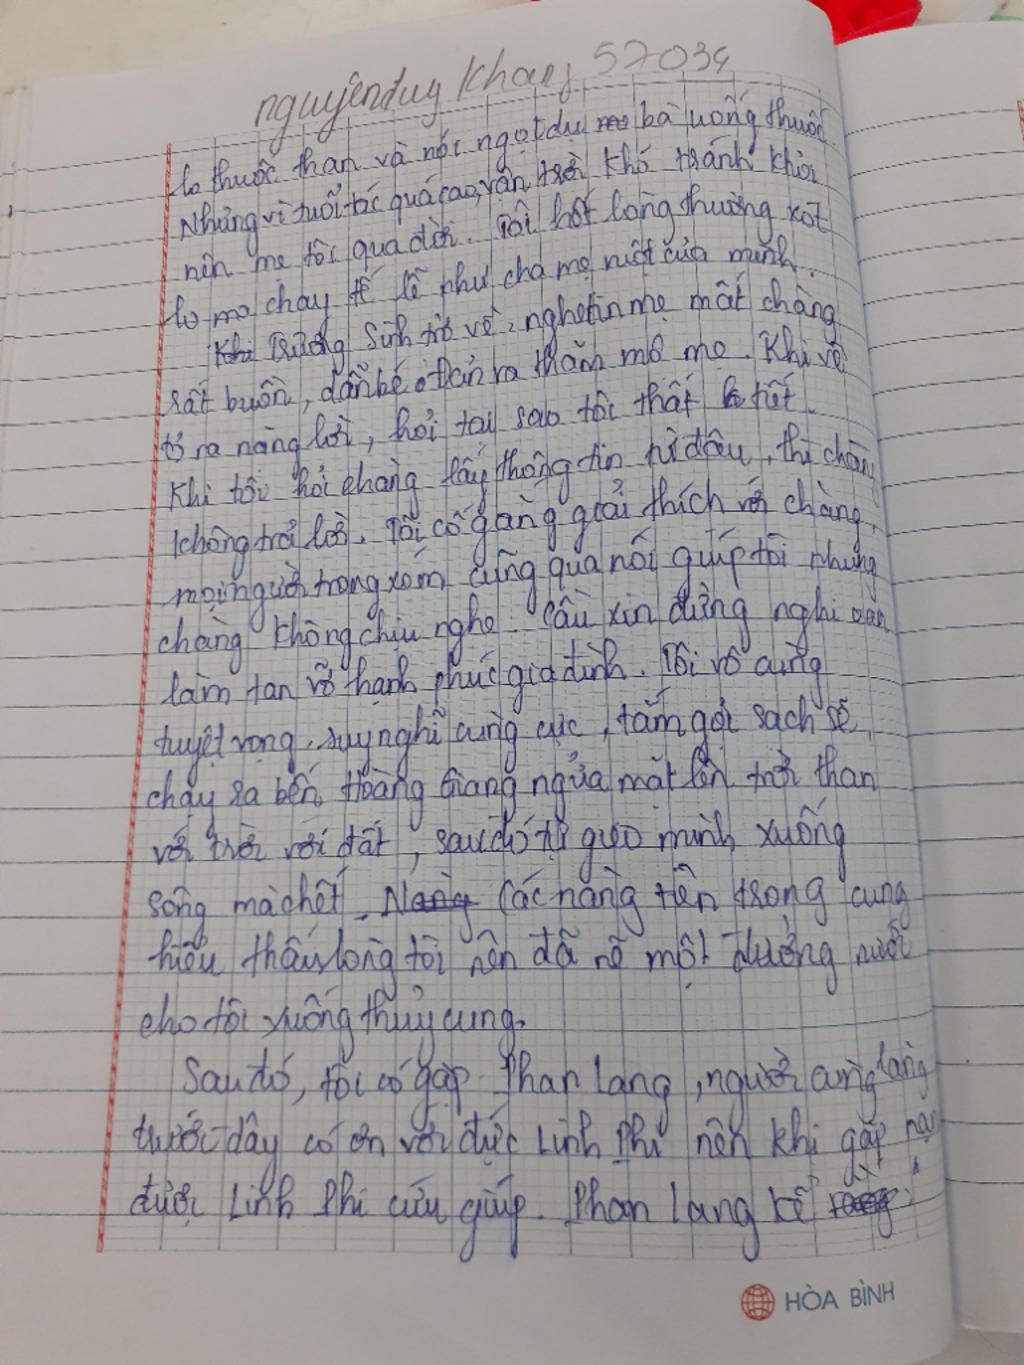 nguyễn duy Khang 57034
lo thuốc than và nói ngọt dịu bà uống thuốc.
Nhưng vì tuổi tác quá cao, vận trời khó tránh khỏi
nên mẹ tôi qua đời. Tôi hết lòng thương xót
lo ma chay tế lễ như cha mẹ ruột của mình.
Khi Trương Sinh trở về, nghe tin mẹ mất chàng
rất buồn, dẫn bé Đản ra thăm mộ mẹ. Khi về
tỏ ra nặng lời, hỏi tại sao tôi thất tiết.
Khi tôi hỏi chàng lấy thông tin từ đâu, thì chàng
không trả lời. Tôi cố gắng giải thích với chàng,
mọi người trong xóm cũng qua nói giúp tôi nhưng
chàng không chịu nghe. Cầu xin đừng nghi oan
làm tan vỡ hạnh phúc gia đình. Tôi vô cùng
tuyệt vọng, suy nghĩ cùng cực, tắm gội sạch sẽ,
chạy ra bến Hoàng Giang ngửa mặt lên trời than
với trời với đất, sau đó tự gieo mình xuống
sông mà chết. Các nàng tiên trong cung
hiểu thấu lòng tôi nên đã rẽ một đường nước
cho tôi xuống thủy cung.
Sau đó, tôi có gặp Phan Lang, người cùng làng
trước đây có ơn với đức Linh Phi nên khi gặp nạn
được Linh Phi cứu giúp. Phan Lang kể
HÒA BÌNH